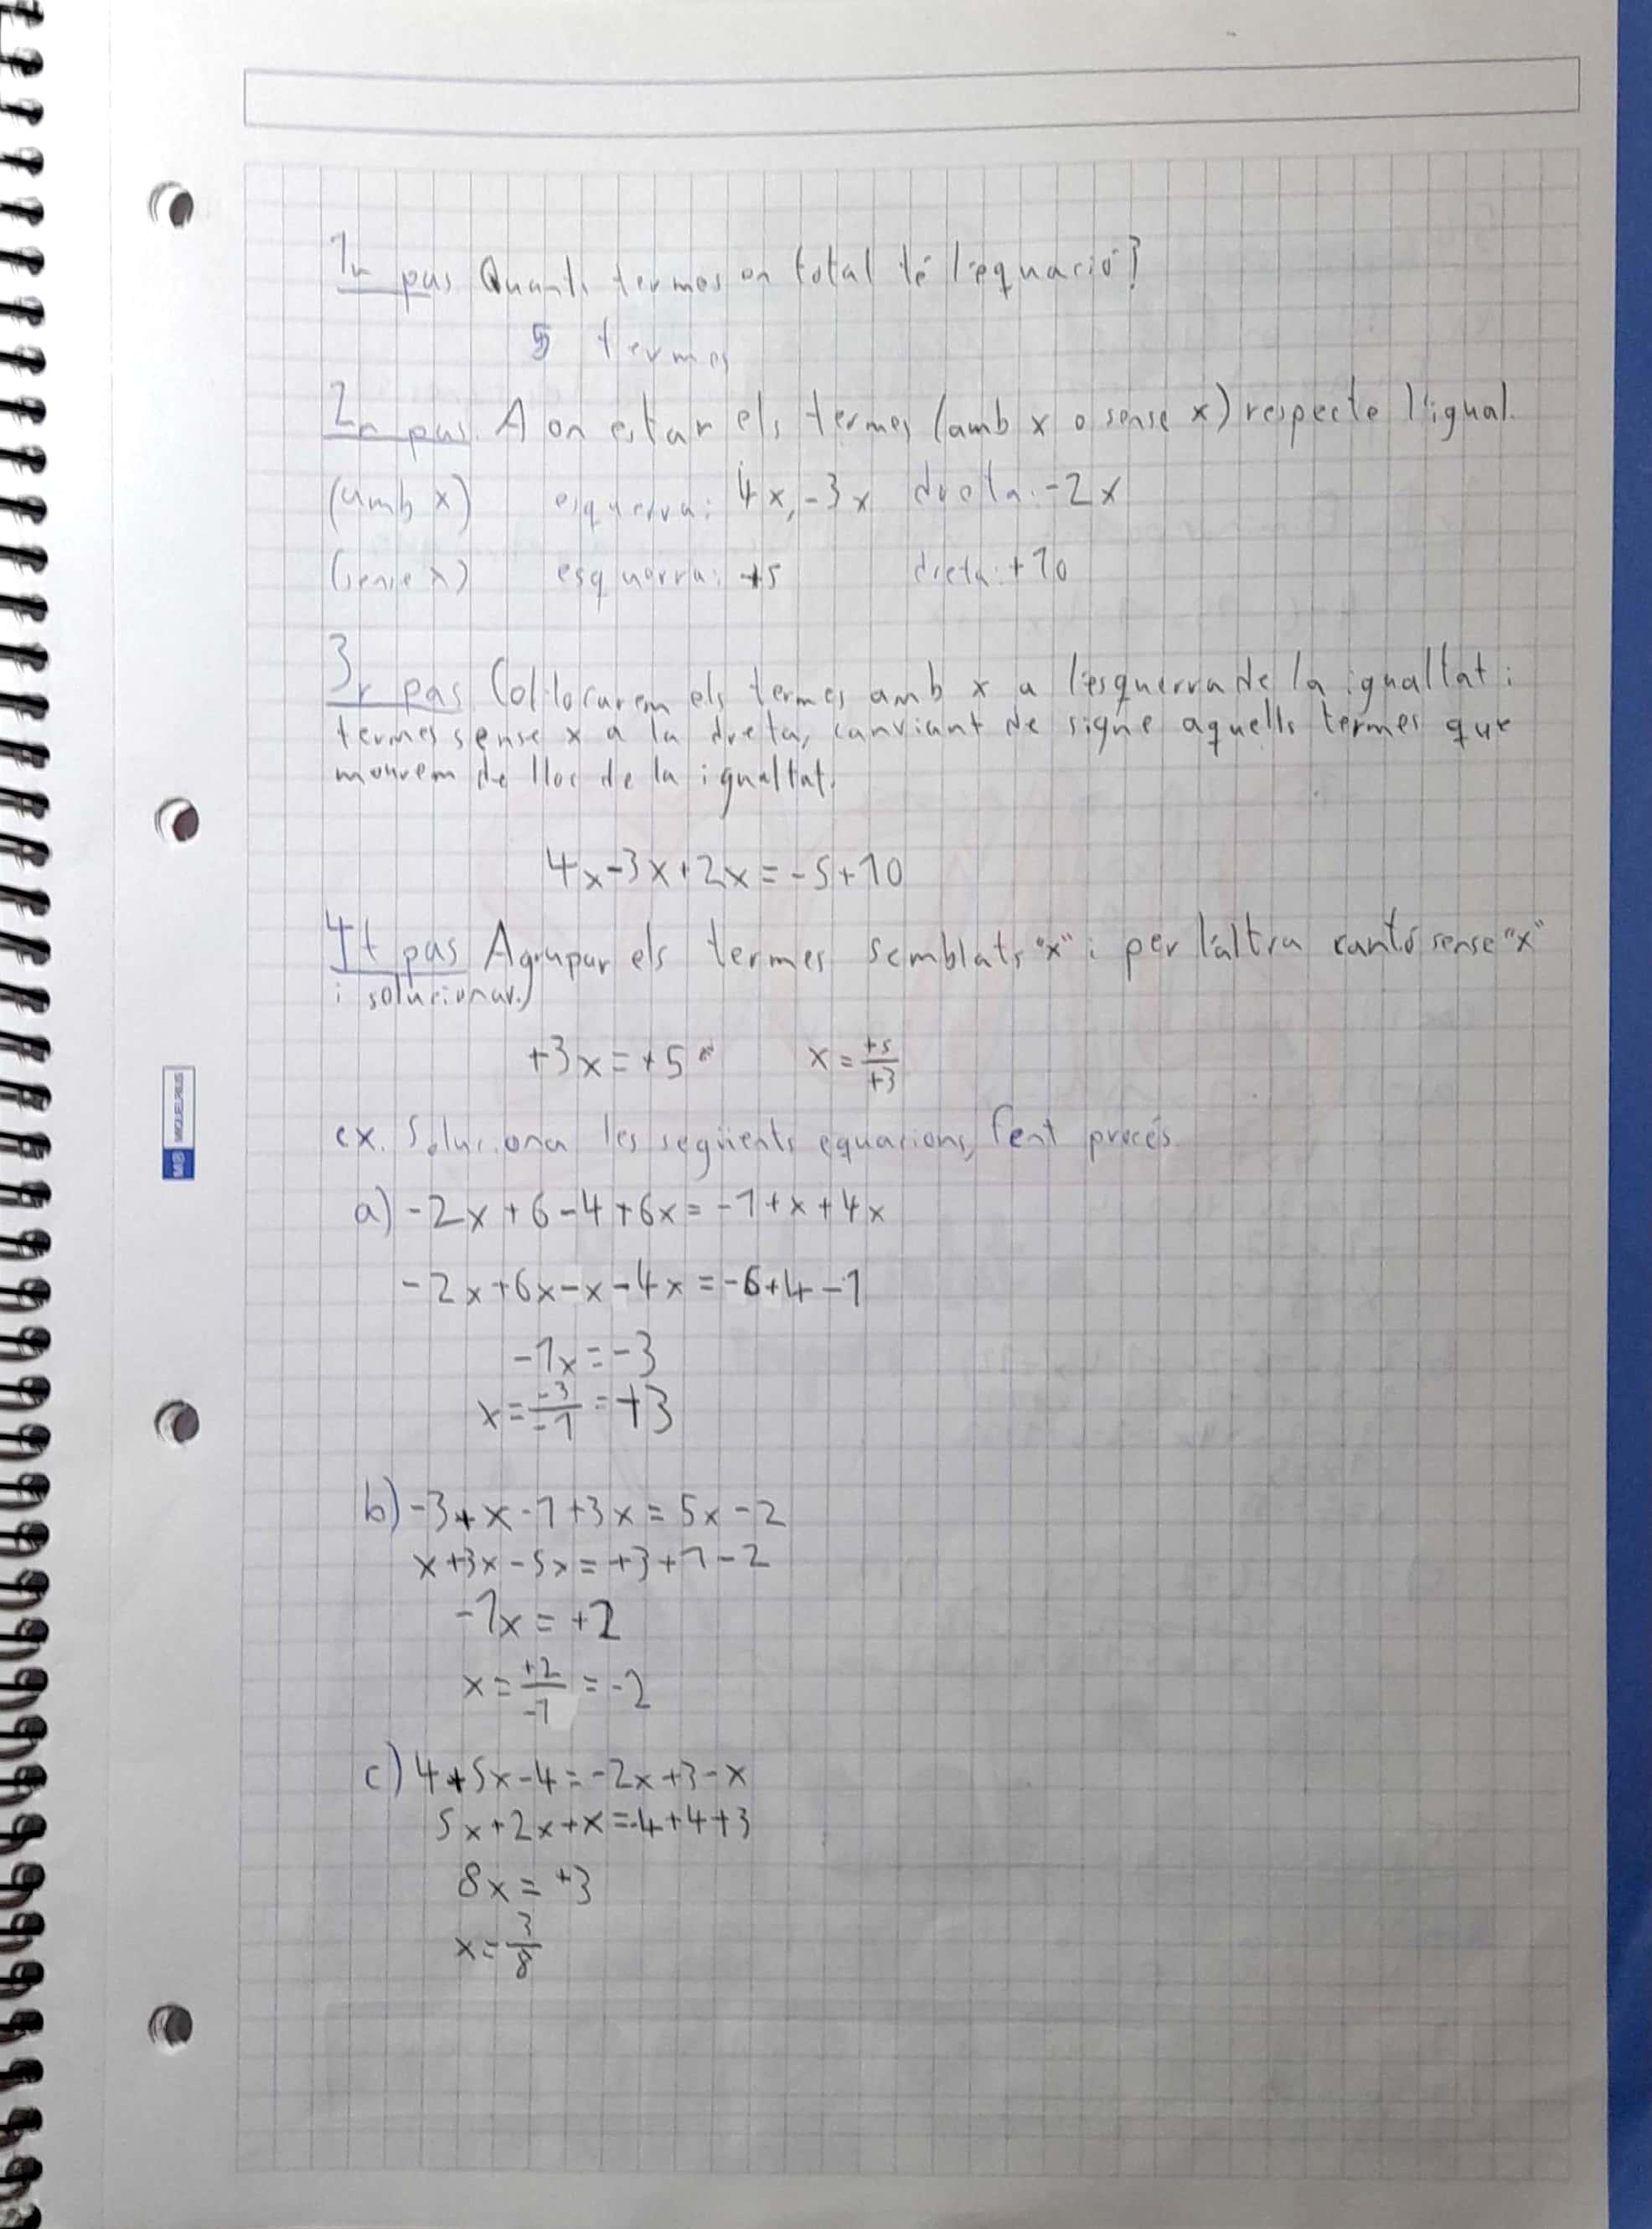 1r pas Quants termes en total té l'equació?
5 termes
2n pas. A on estan els termes (amb x o sense x) respecte l'igual.
(amb x) esquerra: 4x, -3x dreta: -2x
(sense x) esquerra: +5 dreta: +10
3r pas Col·locarem els termes amb x a l'esquerra de la igualtat i
termes sense x a la dreta, canviant de signe aquells termes que
mourem de lloc de la igualtat.
4x-3x+2x=-5+10
4t pas Agrupar els termes semblats "x" i per l'altra cantó sense "x"
i solucionar.
+3x=+5 x=+5/+3
ex. Soluciona les següents equacions, fent procés
a) -2x+6-4+6x=-1+x+4x
-2x+6x-x-4x=-6+4-1
-1x=-3
x=-3/-1=+3
b) -3+x-1+3x=5x-2
x+3x-5x=+3+1-2
-1x=+2
x=+2/-1=-2
c) 4+5x-4=-2x+3-x
5x+2x+x=-4+4+3
8x=+3
x=3/8
MIQUELRIUS